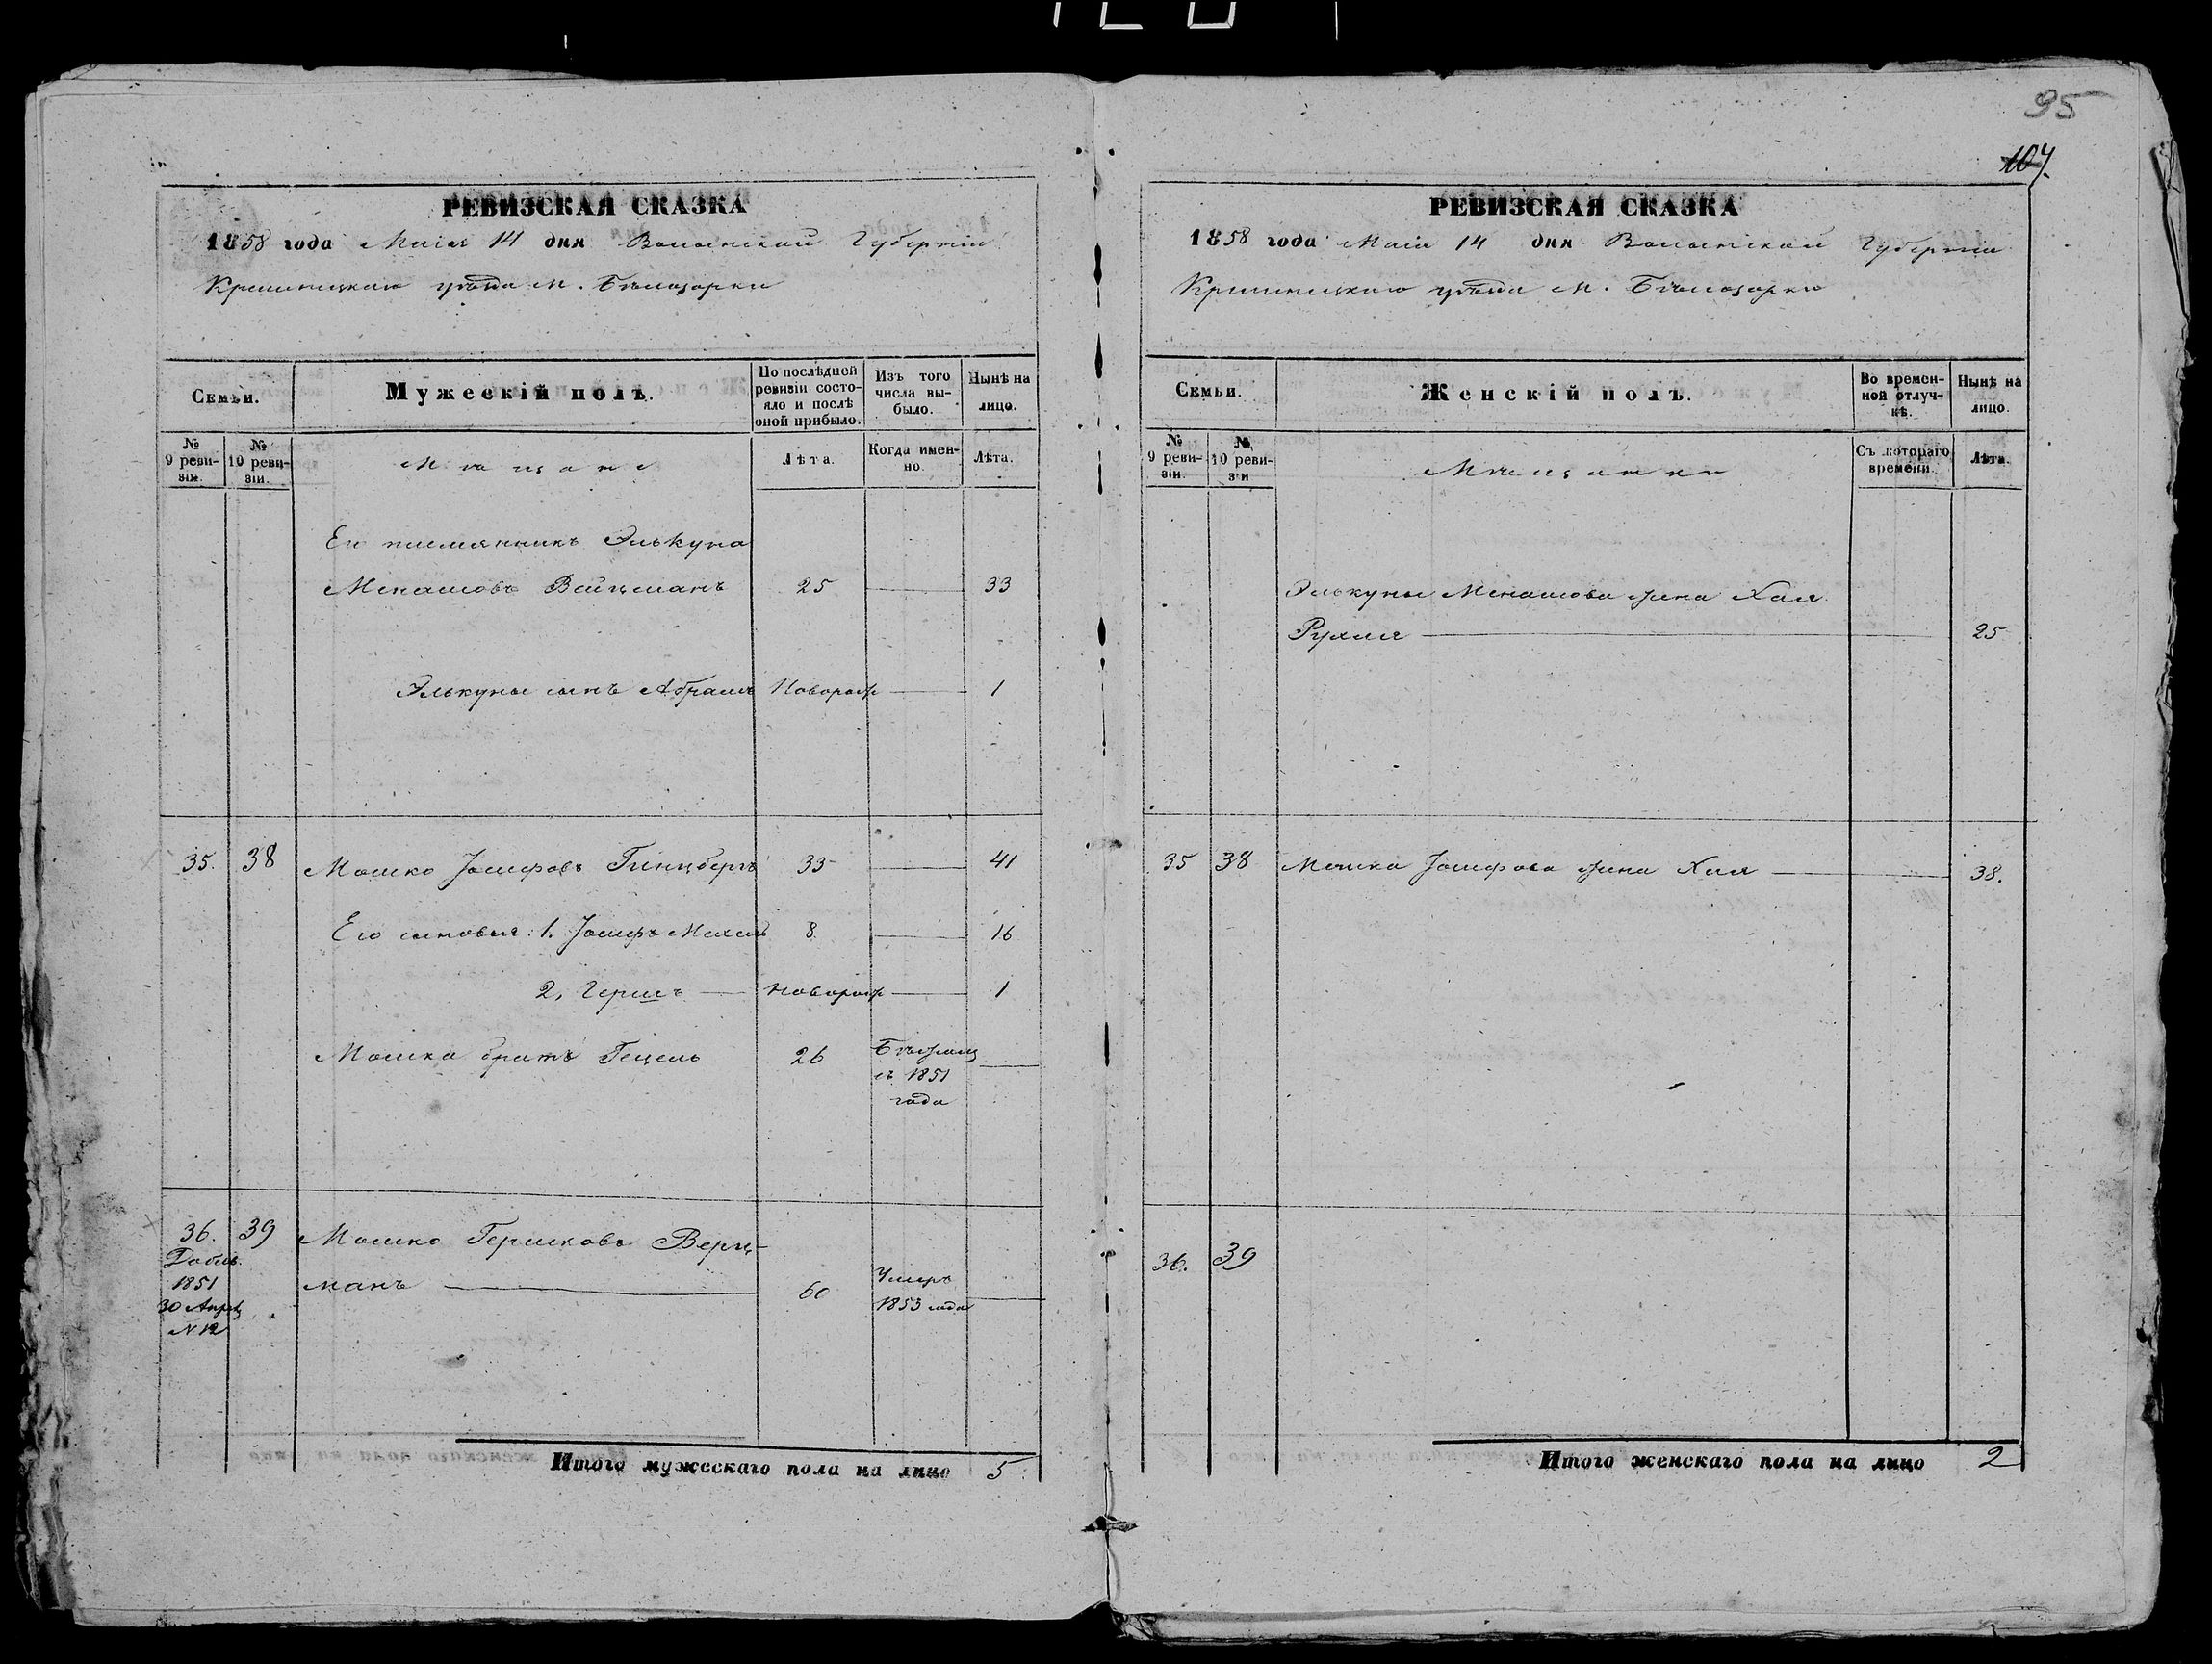 95
107.
РЕВИЗСКАЯ СКАЗКА
1858 года Маія 14 дня Волынской Губерніи
Кременецкаго уѣзда м. Бѣлозорки
Семьи.
Мужескій полъ.
По послѣдней ревизіи состояло и послѣ оной прибыло.
Изъ того числа выбыло.
Нынѣ на лицо.
№ 9 ревизіи.
№ 10 ревизіи.
Мѣщане
Лѣта.
Когда именно.
Лѣта.
Его племянникъ Элькуна
Менашовъ Вайцманъ 25 33
Элькуны сынъ Абрамъ Новорож 1
35. 38 Мошко Іосифовъ Гинцбергъ 33 41
Его сыновья: 1. Іосифъ Михель 8 16
2, Гершъ новорож 1
Мошка братъ Гецель 26 Бѣжалъ
съ 1851
года
36. 39 Мошко Гершковъ Верц-
Добав.
1851 манъ 60 Умеръ
30 Апрѣ 1853 года
N 12
Итого мужескаго пола на лицо 5
РЕВИЗСКАЯ СКАЗКА
1858 года Маія 14 дня Волынской Губерніи
Кременецкаго уѣзда м. Бѣлозорки
Семьи.
Женскій полъ.
Во временной отлучкѣ.
Нынѣ на лицо.
№ 9 ревизіи.
№ 10 ревизіи
Мѣщанки
Съ котораго времени.
Лѣта.
Элькуны Менашова жена Хая
Рухля 25
35 38 Мошка Іосифова жена Хая 38.
36. 39
Итого женскаго пола на лицо 2